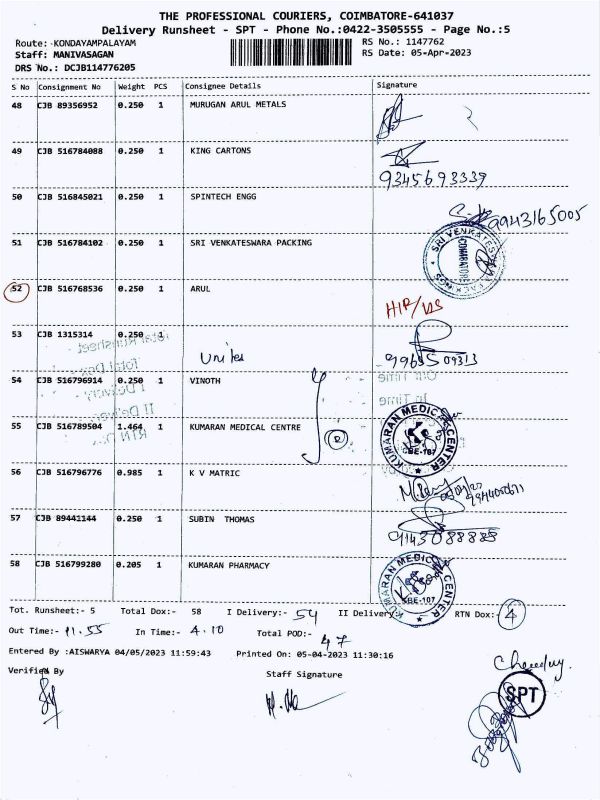 THE PROFESSIONAL COURIERS, COIMBATORE-641037
Delivery Runsheet - SPT - Phone No.:0422-3505555 - Page No.:5
Route: KONDAYAMPALAYAM RS No.: 1147762
Staff: MANIVASAGAN RS Date: 05-Apr-2023
DRS No.: DCJB114776205
S No Consignment No Weight PCS Consignee Details Signature
48 CJB 89356952 0.250 1 MURUGAN ARUL METALS
49 CJB 516784088 0.250 1 KING CARTONS
9345693339
50 CJB 516845021 0.250 1 SPINTECH ENGG
9943165005
51 CJB 516784102 0.250 1 SRI VENKATESWARA PACKING
SRI VENKATESWARA PACKINGS COIMBATORE
52 CJB 516768536 0.250 1 ARUL
53 CJB 1315314 0.250 1
Unites
9965509313
54 CJB 516796914 0.250 1 VINOTH
55 CJB 516789504 1.464 1 KUMARAN MEDICAL CENTRE
KUMARAN MEDICAL CENTER CBE-107
56 CJB 516796776 0.985 1 K V MATRIC
57 CJB 89441144 0.250 1 SUBIN THOMAS
9143088888
58 CJB 516799280 0.205 1 KUMARAN PHARMACY
KUMARAN MEDICAL CENTER CBE-107
Tot. Runsheet:- 5 Total Dox:- 58 I Delivery:- 54 II Delivery:- RTN Dox:- 4
Out Time:- 11.55 In Time:- 4.10 Total POD:- 47
Entered By :AISWARYA 04/05/2023 11:59:43 Printed On: 05-04-2023 11:30:16
Verified By Staff Signature
SPT